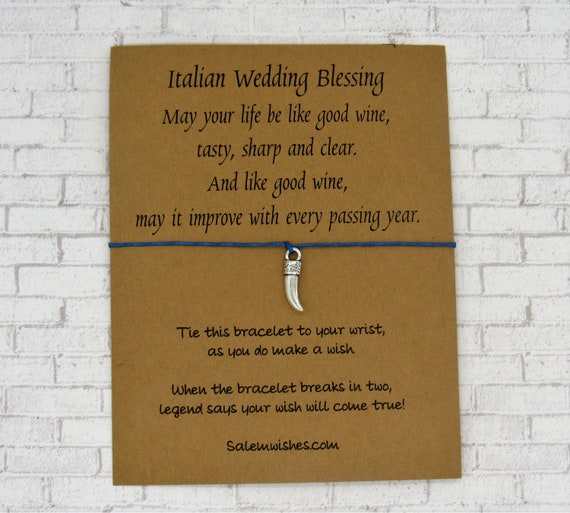 Italian Wedding Blessing
May your life be like good wine,
tasty, sharp and clear.
And like good wine,
may it improve with every passing year.
Tie this bracelet to your wrist,
as you do make a wish
When the bracelet breaks in two,
legend says your wish will come true!
Salemwishes.com